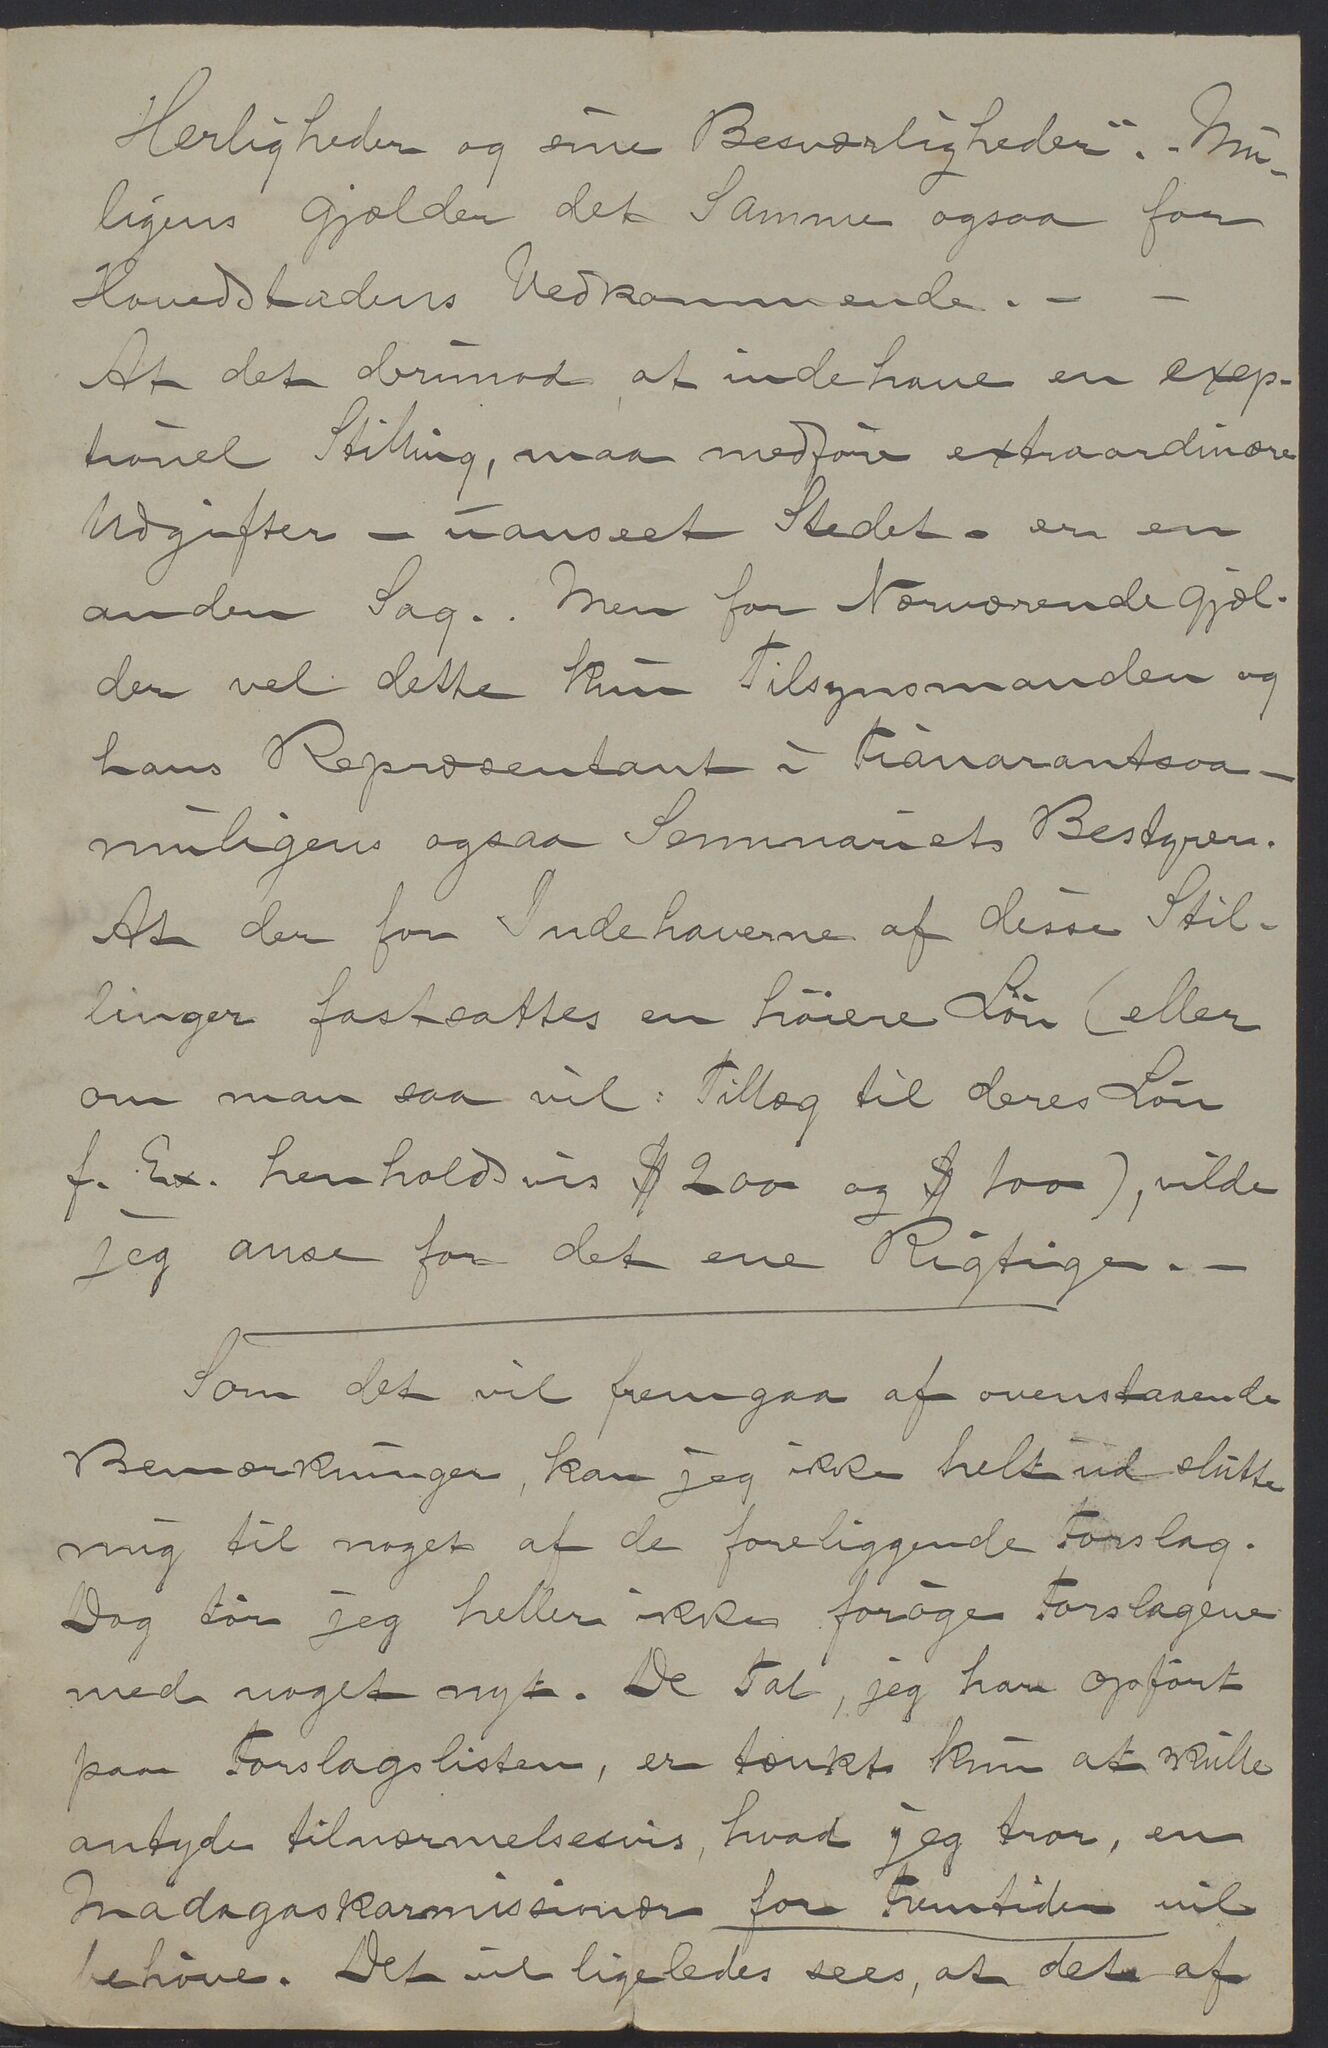 Herligheder og sine Besværligheder". - Mu-
ligens gjælder det Samme ogsaa for
Hovedstadens Vedkommende. - -
At det derimod, at indehave en exep-
tionel Stilling, maa medføre extraordinære
Udgifter - uanseet Stedet - er en
anden Sag. . Men for Nærværende gjæl-
der vel dette kun Tilsynsmanden og
hans Repræsentant i Fianarantsoa -
muligens ogsaa Seminariets Bestyrer.
At der for Indehaverne af disse Stil-
linger fastsattes en høiere Løn (eller
om man saa vil: Tillæg til deres Løn
f. Ex. henholdsvis $ 200 og $ 100), vilde
jeg anse for det ene Rigtige. -
Som det vil fremgaa af ovenstaaende
Bemærkninger, kan jeg ikke helt ud slutte
mig til noget af de foreliggende Forslag.
Dog tør jeg heller ikke forøge Forslagene
med noget nyt. De Tal, jeg har opført
paa Forslagslisten, er tænkt kun at skulle
antyde tilnærmelsesvis, hvad jeg tror, en
Madagaskarmissionær for Fremtiden vil
behøve. Det vil ligeledes sees, at det af